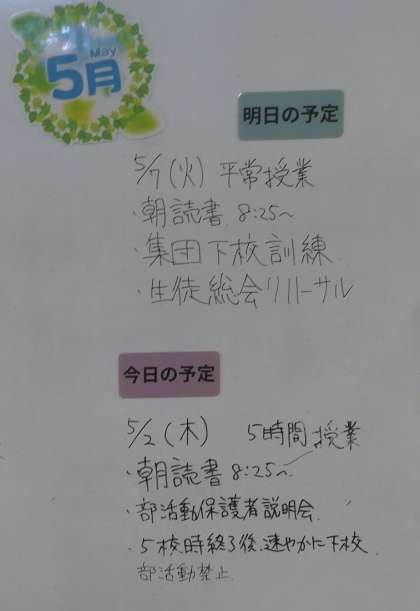 May
5月
明日の予定
5/7(火) 平常授業
・朝読書 8:25~
・集団下校訓練
・生徒総会リハーサル
今日の予定
5/2(木) 5時間授業
・朝読書 8:25~
・部活動保護者説明会
・5校時終了後、速やかに下校
部活動禁止